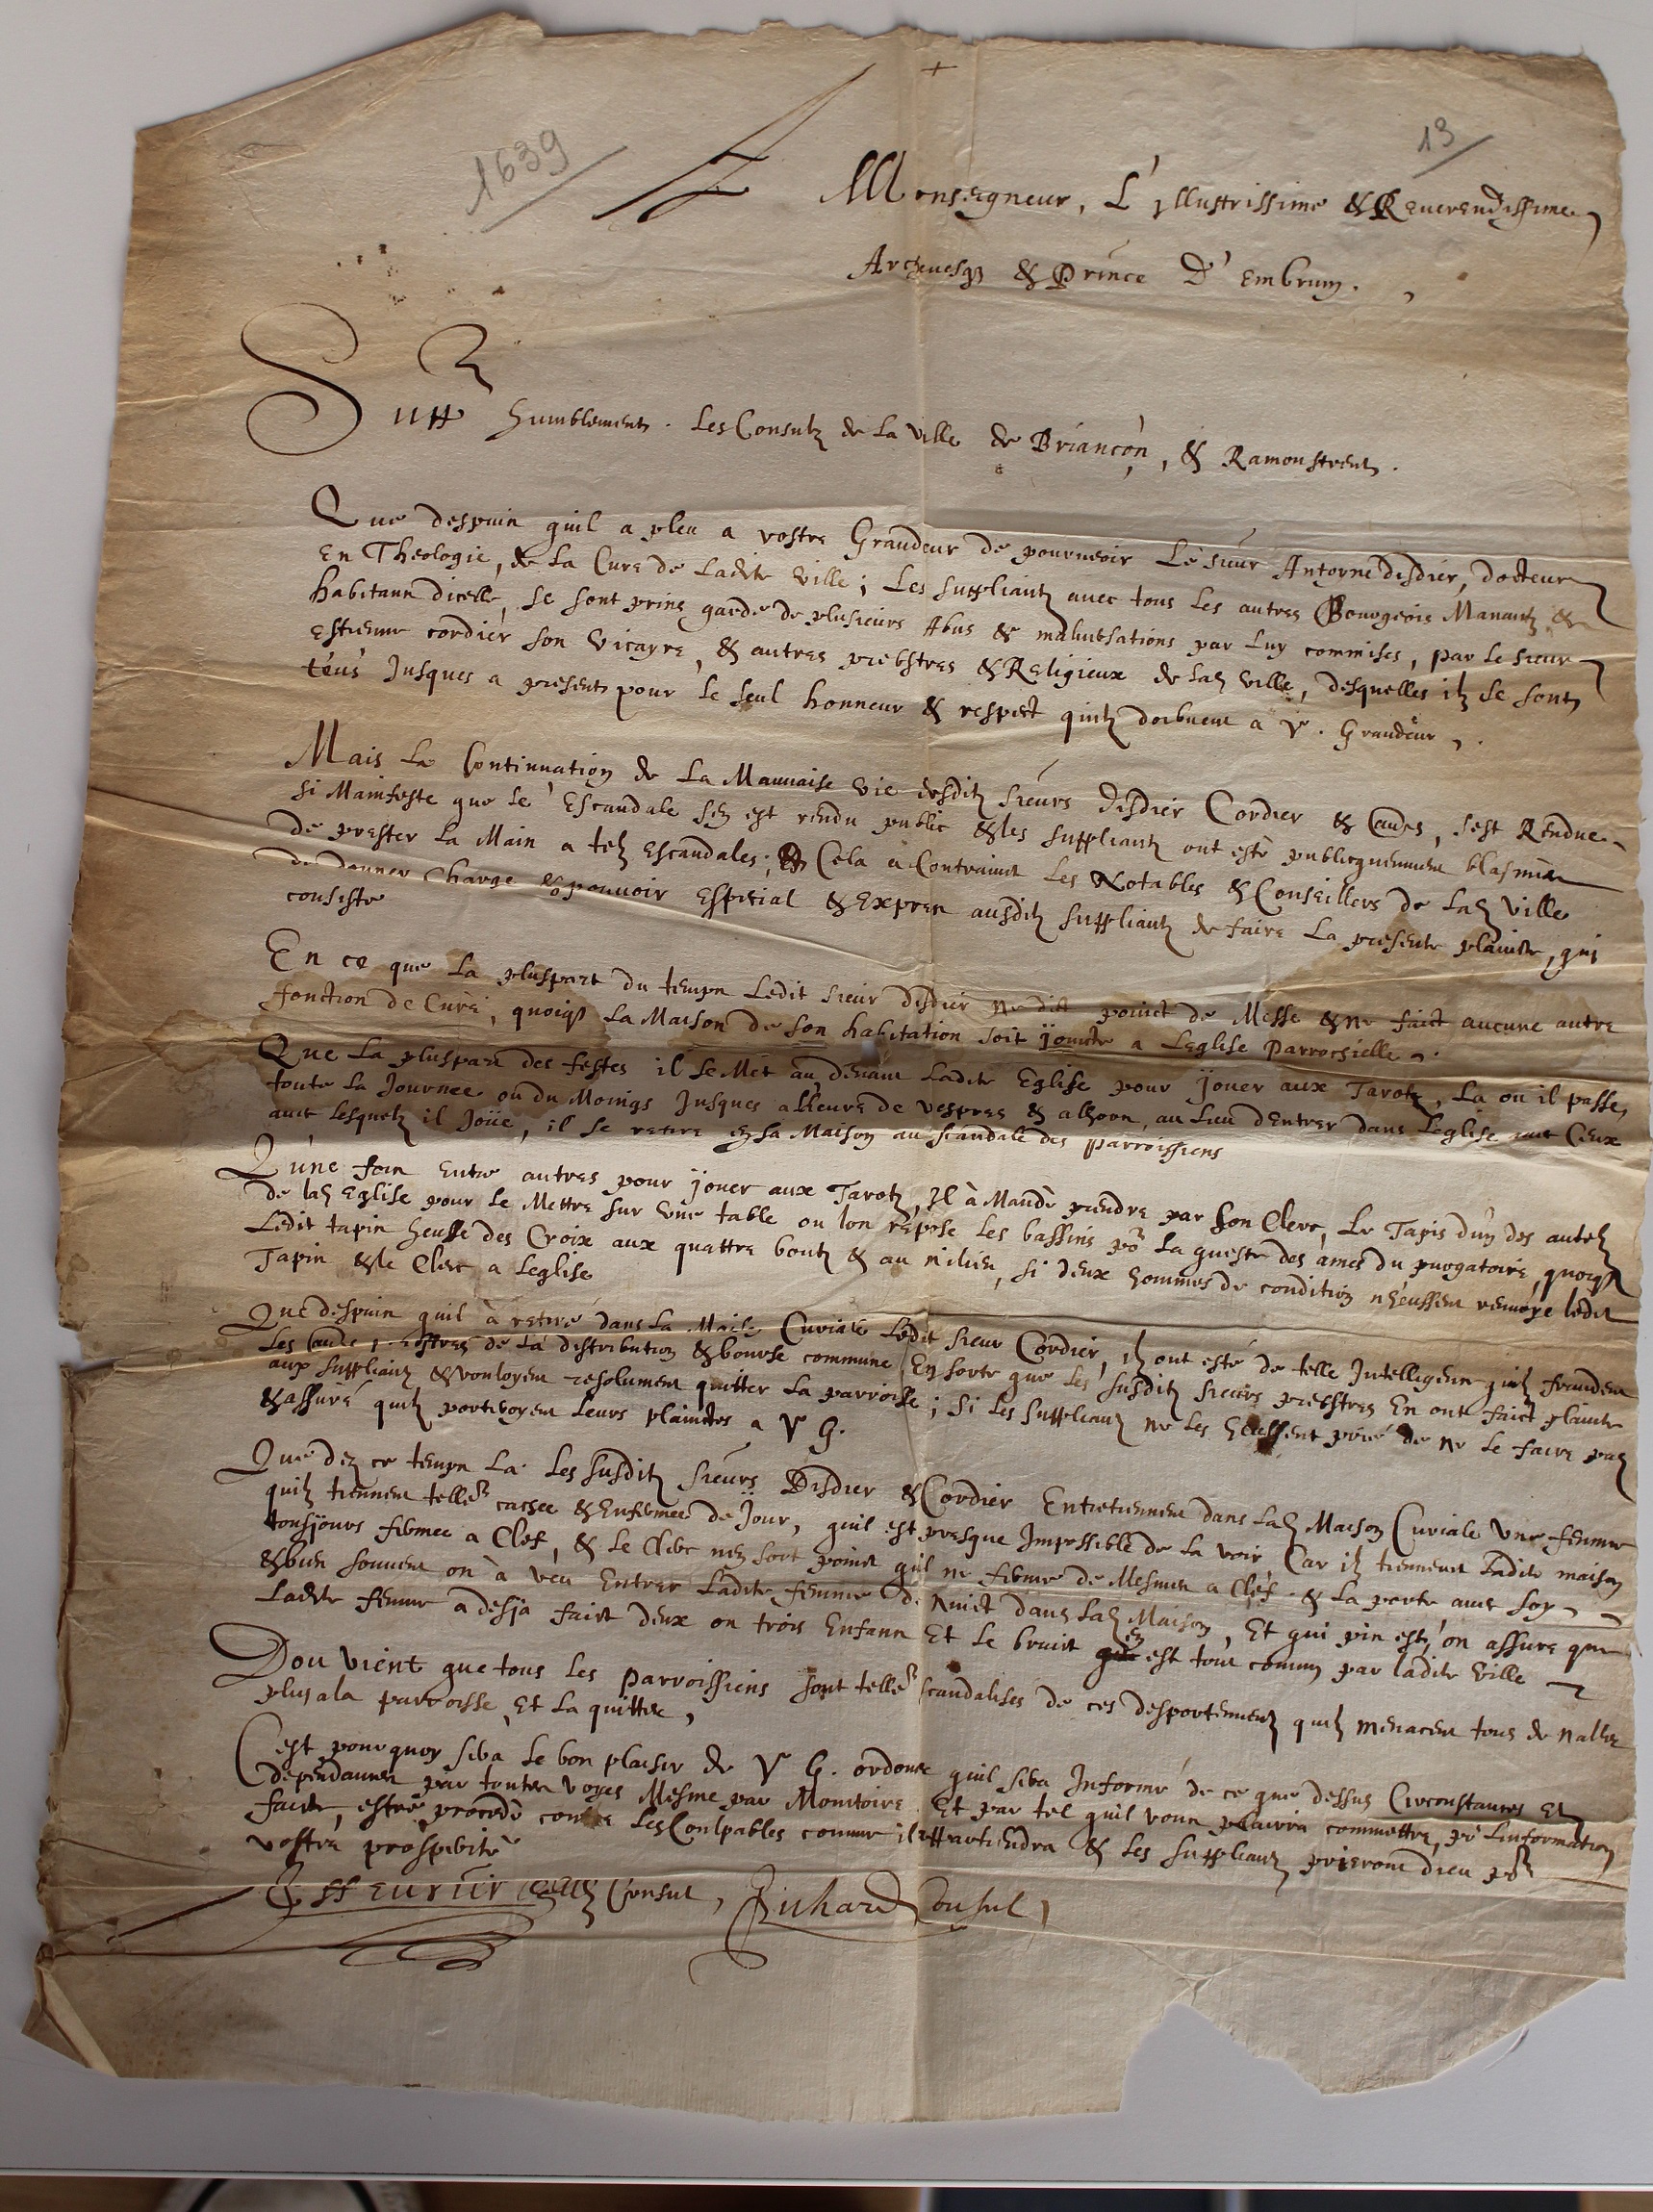 1639
13
A Monseigneur, L'Illustrissime & Reverendissime
Archevesq & Prince D'Embrun.
Supp humblement. Les Consulz de La Ville de Briançon, & Ramonstrent.
Que despuis quil a pleu a vostre Grandeur de pourveoir Le sieur Antoyne disdier, docteur
En Theologie, de La Cure de Ladite Ville; Les suppliantz avec tous Les autres Bourgeois Manantz, &
habitans dicelle, se sont prins garde de plusieurs Abus & malversations par Luy commises, par Le sieur
Estienne cordier son Vicayre, & autres prebstres & Religieux de lad Ville, desquelles ilz se sont
teus Jusques a present pour le seul honneur & respect quilz doibvent a V. Grandeur.
Mais La Continuation de La Mauvaise vie desditz sieurs disdier Cordier & , sest Rendue
si Manifeste que le Escandale sen est rendu public & les suppliantz ont esté publicquement blasmes
de prester La Main a telz Escandales; Cela a Contraint Les Notables & Conseillers de Lad Ville
de donner Charge & pouvoir Espetial & Expres ausditz suppliantz de faire La presente plainte, qui
consiste
En ce que La pluspart du temps Ledit sieur disdier ne dit point de Messe & ne faict aucune autre
fonction de Curé, quoiq La Maison de son habitation soit jointe a Leglise Parrochielle.
Que La pluspart des festes il se Met au devant Ladite Eglise pour jouer aux Tarotz, La ou il passe
toute La Journee ou du Moings Jusques a Lheure de vespres & alhors, au Lieu dEntrer dans Leglise avec Ceux
avec Lesquelz il Joüe, il se retire en sa Maison au scandale des parroissiens
Qu'une fois Entre autres pour jouer aux Tarotz, Il à Mandé prendre par son Clerc, Le Tapis d'un des autelz
de lad Eglise pour le Mettre sur une table ou lon repose Les bassins po La queste des ames du purgatoire, quoyq
Ledit tapis heusse des Croix aux quattre boutz & au milieu, si deux hommes de condition n'heussent renvoye ledit
Tapis & le Clerc a Leglise
Que despuis quil à retiré dans La Maison Curiale Ledit sieur Cordier, ilz ont esté de telle Intelligence quilz fraudent
Les prebstres de La distribution & bourse commune En sorte que Les susditz sieurs prebstres En ont faict plainte
aux suppliantz & vouloyent resolument quitter La parroisse; si Les suppliantz ne Les heussent prié de ne Le faire pas
& assuré quilz porteroyent Leurs plaintes a V G.
Que dez ce temps La Les susditz sieurs Disdier & Cordier Entretiennent dans Lad Maison Curiale Une femme
quilz tiennent tellet cachee & Enfermee de Jour, quil est presque Impossible de La voir Car ilz tiennent Ladite maison
tousjours fermee a Clef, & Le Clerc nen sort point quil ne ferme de Mesmes a Clef. & La porte avec soy
& bien souvent on à veu Entrer Ladite femme de Nuict dans Lad Maison, Et qui pis est, on assure que
Ladite femme a desja faict deux ou trois Enfans Et Le bruict en est tout commun par ladite Ville
Dou Vient que tous Les Parroissiens sont tellet scandalises de ces desportementz quilz menacent tous de naller
plus a la parroisse, Et La quitter,
C'est pourquoy sera Le bon plaisir de V G. ordoner quil sera Informé de ce que dessus Circonstances Et
dependances par toutes voyes Mesme par Monitoire Et par tel quil vous plairra commettre, po Linformation
faicte, estre procedé contre Les Coulpables comme il appartiendra & Les suppliantz prieront dieu por
vostre prosperité
Consul, Richard Consul